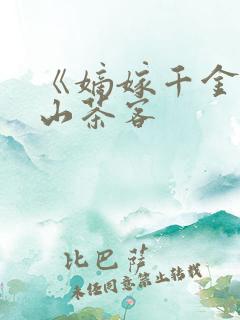 《嫡嫁千金
山茶客
比巴萨
未经同意禁止转载